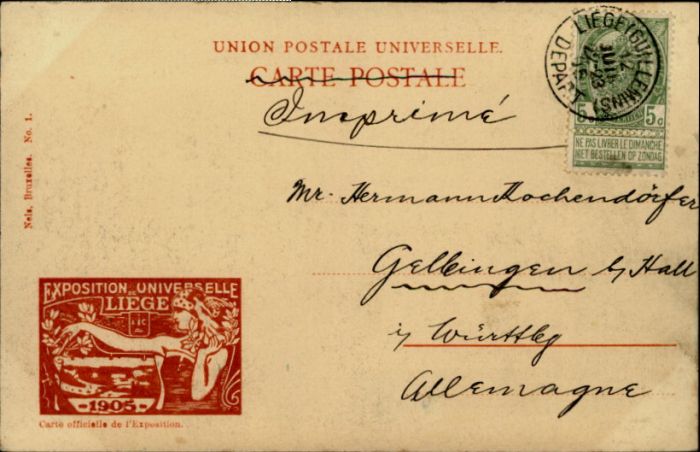 UNION POSTALE UNIVERSELLE.
CARTE POSTALE
Imprimé
LIEGE (GUILLEMINS)
12
JUIL
DEPART
5c 5c
NE PAS LIVRER LE DIMANCHE
NIET BESTELLEN OP ZONDAG
Nels, Bruxelles. No. 1.
Mr. Hermann Kochendörfer
Gelbingen b/ Hall
i/ Württbg
Allemagne
EXPOSITION UNIVERSELLE
LIÈGE
1905
Carte officielle de l'Exposition.